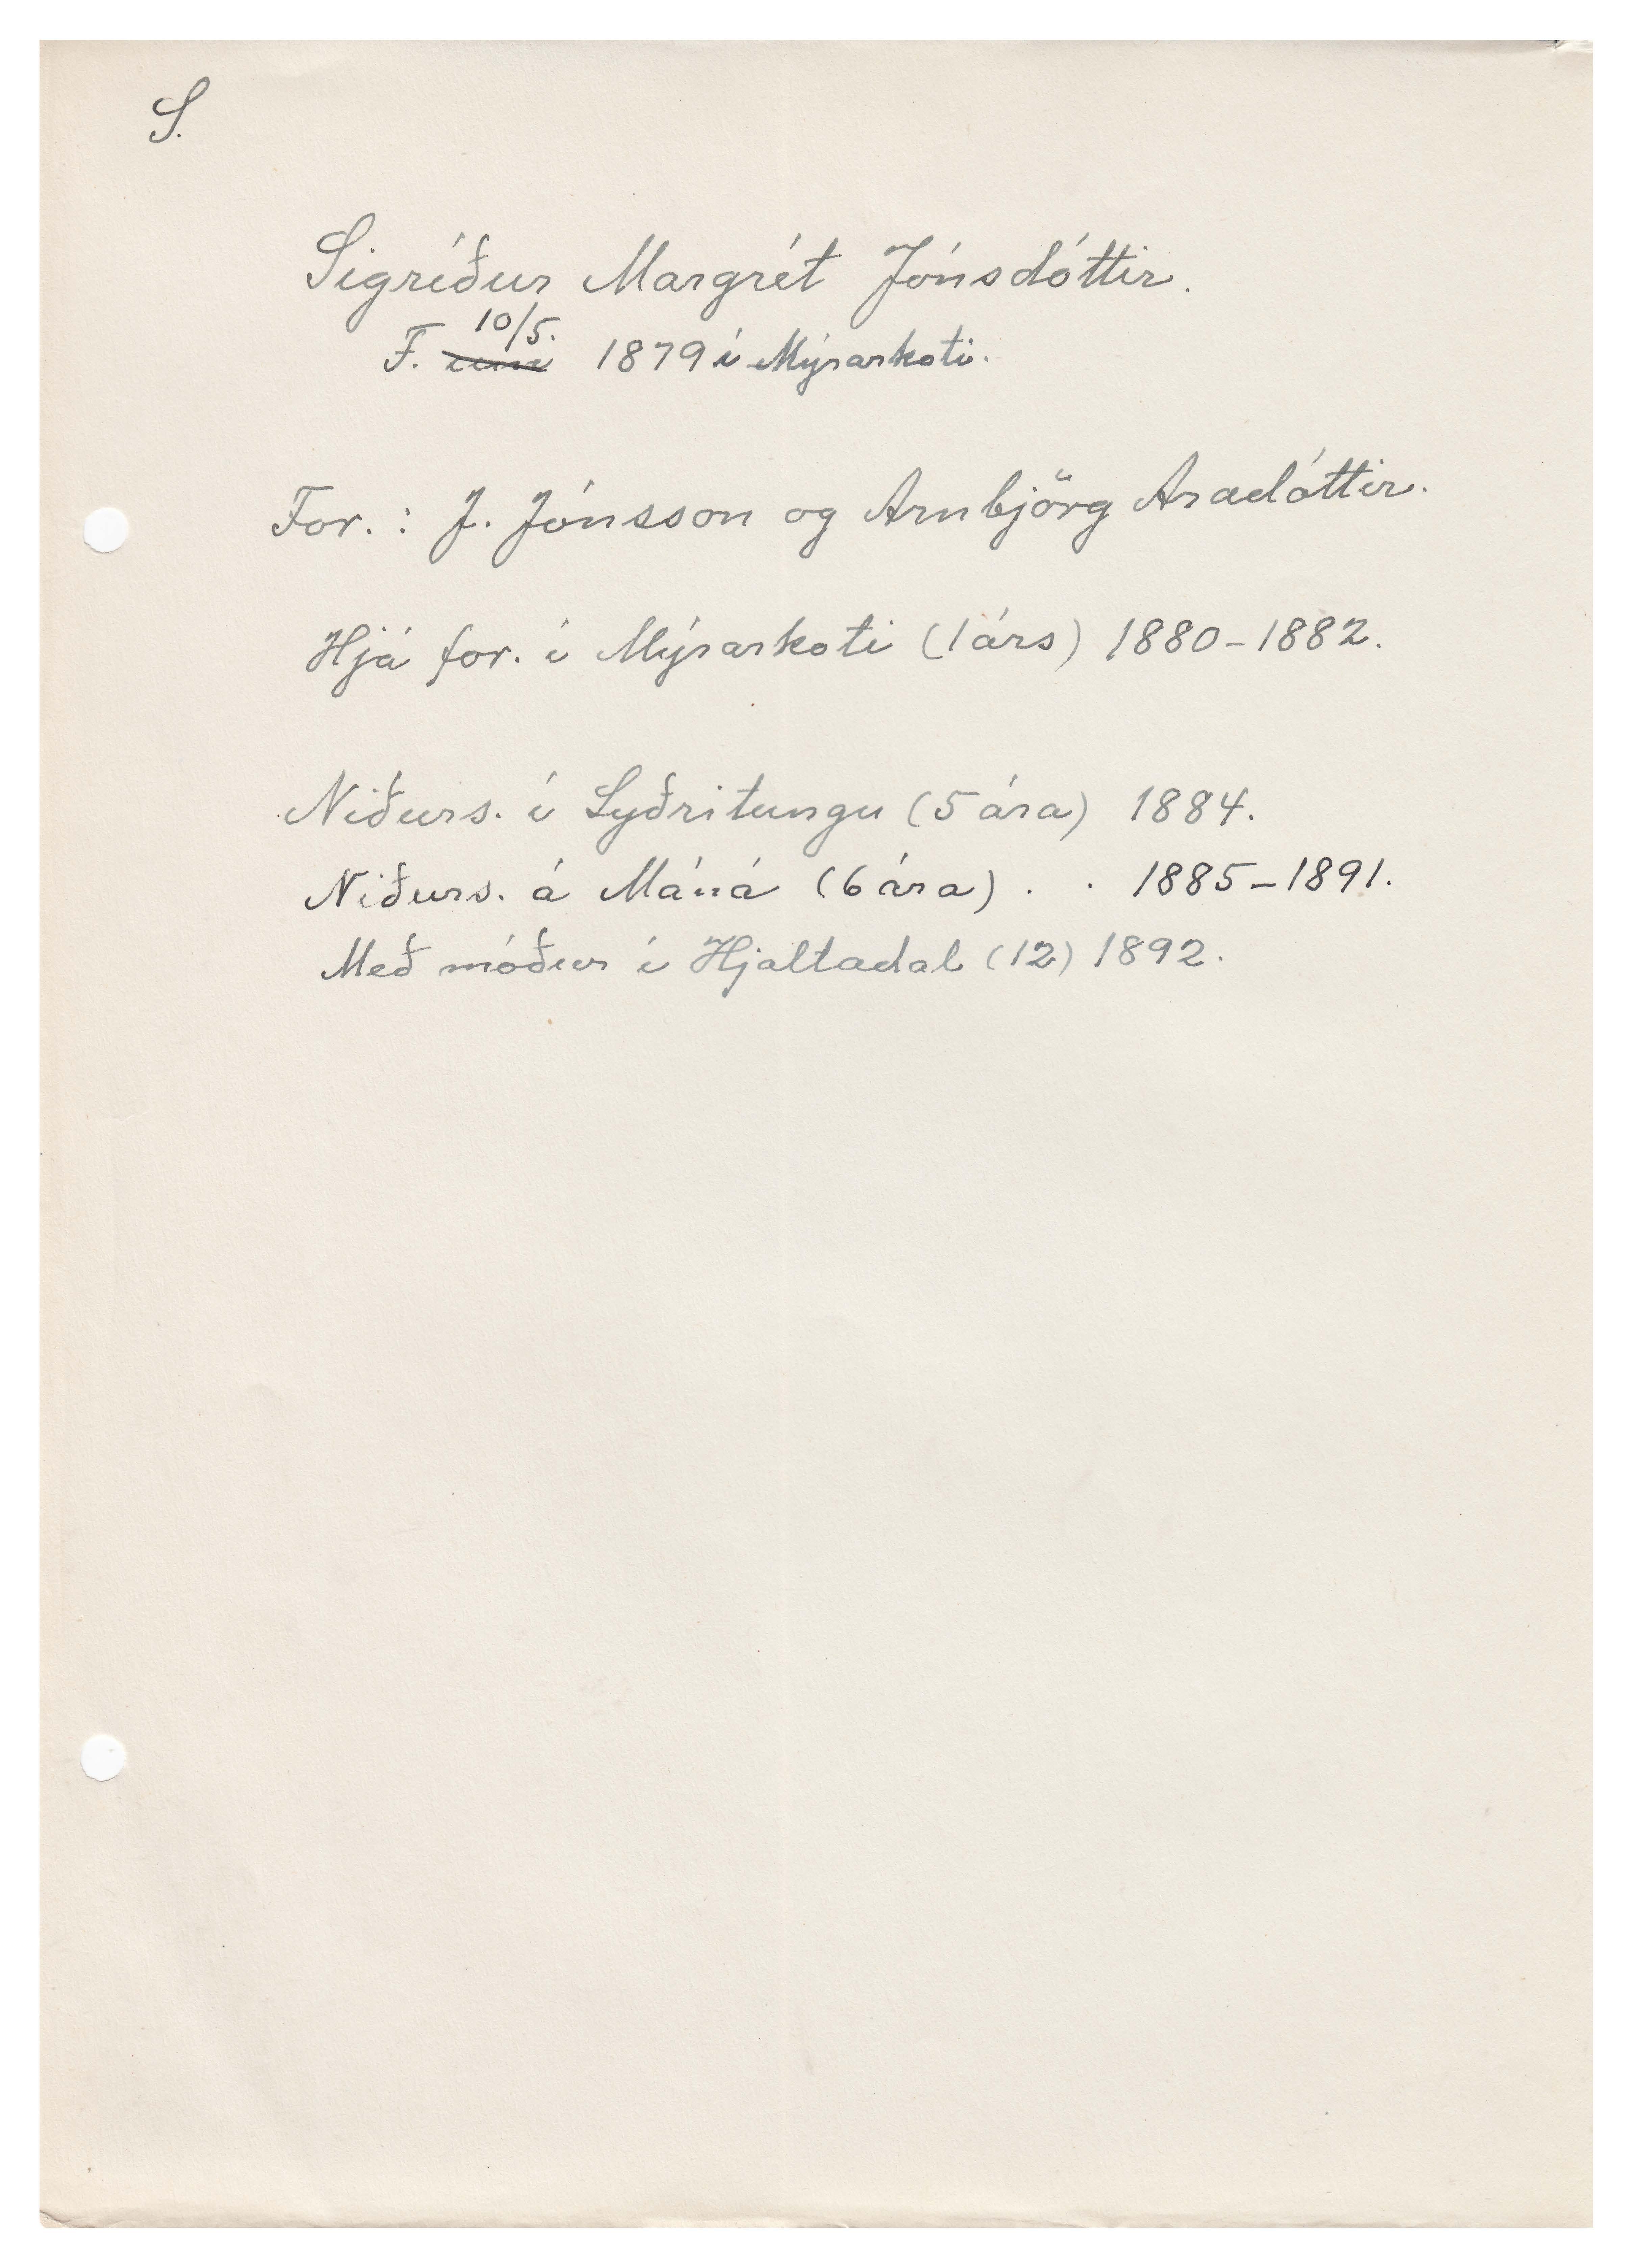 S.
Sigríður Margrét Jónsdóttir.
10/5.
F. 1879 í Mýrarkoti.
For. : J. Jónsson og Arnbjörg Aradóttir.
Hjá for. í Mýrarkoti (1 árs) 1880-1882.
Niðurs. í Syðritungu (5 ára) 1884.
Niðurs. á Máná (6 ára) . . 1885-1891.
Með móður í Hjaltadal (12) 1892.